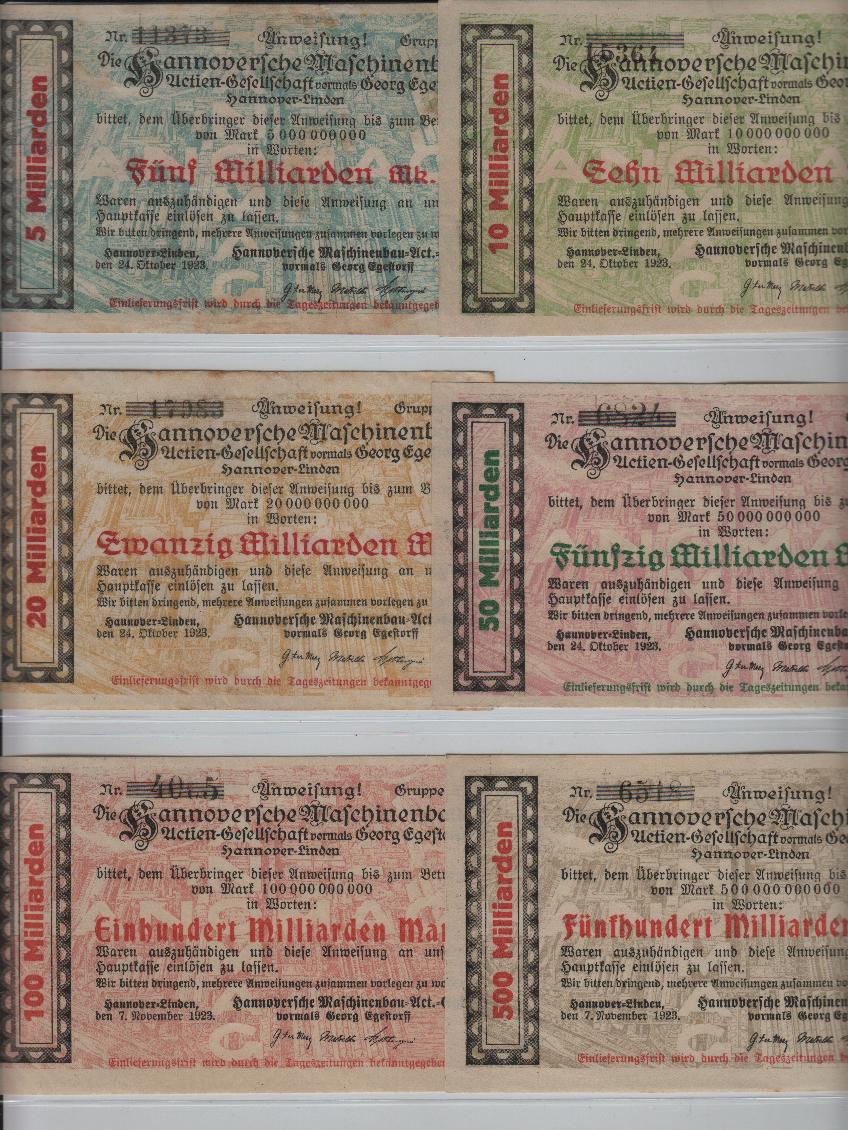 5 Milliarden
Nr. 11373 Anweisung! Grupp
Die Hannoversche Maschinenb
Actien-Gesellschaft vormals Georg Ege
Hannover-Linden
bittet, dem Überbringer dieser Anweisung bis zum Be
von Mark 5 000 000 000
in Worten:
Fünf Milliarden Mk.
Waren auszuhändigen und diese Anweisung an un
Hauptkasse einlösen zu lassen.
Wir bitten dringend, mehrere Anweisungen zusammen vorlegen zu w
Hannover-Linden, Hannoversche Maschinenbau-Act.-
den 24. Oktober 1923. vormals Georg Egestorff
Einlieferungsfrist wird durch die Tageszeitungen bekanntgegeb
10 Milliarden
Nr. 15364 Anweisung!
Die Hannoversche Maschin
Actien-Gesellschaft vormals Geo
Hannover-Linden
bittet, dem Überbringer dieser Anweisung bis z
von Mark 10 000 000 000
in Worten:
Zehn Milliarden
Waren auszuhändigen und diese Anweisung
Hauptkasse einlösen zu lassen.
Wir bitten dringend, mehrere Anweisungen zusammen vor
Hannover-Linden, Hannoversche Maschinenb
den 24. Oktober 1923. vormals Georg Eg
Einlieferungsfrist wird durch die Tageszeitungen be
20 Milliarden
Nr. 17983 Anweisung! Grupp
Die Hannoversche Maschinenb
Actien-Gesellschaft vormals Georg Ege
Hannover-Linden
bittet, dem Überbringer dieser Anweisung bis zum B
von Mark 20 000 000 000
in Worten:
Zwanzig Milliarden M
Waren auszuhändigen und diese Anweisung an u
Hauptkasse einlösen zu lassen.
Wir bitten dringend, mehrere Anweisungen zusammen vorlegen zu
Hannover-Linden, Hannoversche Maschinenbau-Act
den 24. Oktober 1923. vormals Georg Egestorff
Einlieferungsfrist wird durch die Tageszeitungen bekanntgege
50 Milliarden
Nr. 6824 Anweisung!
Die Hannoversche Maschin
Actien-Gesellschaft vormals Georg
Hannover-Linden
bittet, dem Überbringer dieser Anweisung bis zu
von Mark 50 000 000 000
in Worten:
Fünfzig Milliarden
Waren auszuhändigen und diese Anweisung
Hauptkasse einlösen zu lassen.
Wir bitten dringend, mehrere Anweisungen zusammen vorle
Hannover-Linden, Hannoversche Maschinenba
den 24. Oktober 1923. vormals Georg Egest
Einlieferungsfrist wird durch die Tageszeitungen beka
100 Milliarden
Nr. Anweisung! Gruppe
Die Hannoversche Maschinenb
Actien-Gesellschaft vormals Georg Egest
Hannover-Linden
bittet, dem Überbringer dieser Anweisung bis zum Bet
von Mark 100 000 000 000
in Worten:
Einhundert Milliarden Mar
Waren auszuhändigen und diese Anweisung an uns
Hauptkasse einlösen zu lassen.
Wir bitten dringend, mehrere Anweisungen zusammen vorlegen zu wo
Hannover-Linden, Hannoversche Maschinenbau-Act.-
den 7. November 1923. vormals Georg Egestorff
Einlieferungsfrist wird durch die Tageszeitungen bekanntgegeben
500 Milliarden
Nr. 6518 Anweisung!
Die Hannoversche Maschi
Actien-Gesellschaft vormals Ge
Hannover-Linden
bittet, dem Überbringer dieser Anweisung bis
von Mark 500 000 000 000
in Worten:
Fünfhundert Milliarden
Waren auszuhändigen und diese Anweisung
Hauptkasse einlösen zu lassen.
Wir bitten dringend, mehrere Anweisungen zusammen vo
Hannover-Linden, Hannoversche Maschinen
den 7. November 1923. vormals Georg Eg
Einlieferungsfrist wird durch die Tageszeitungen be